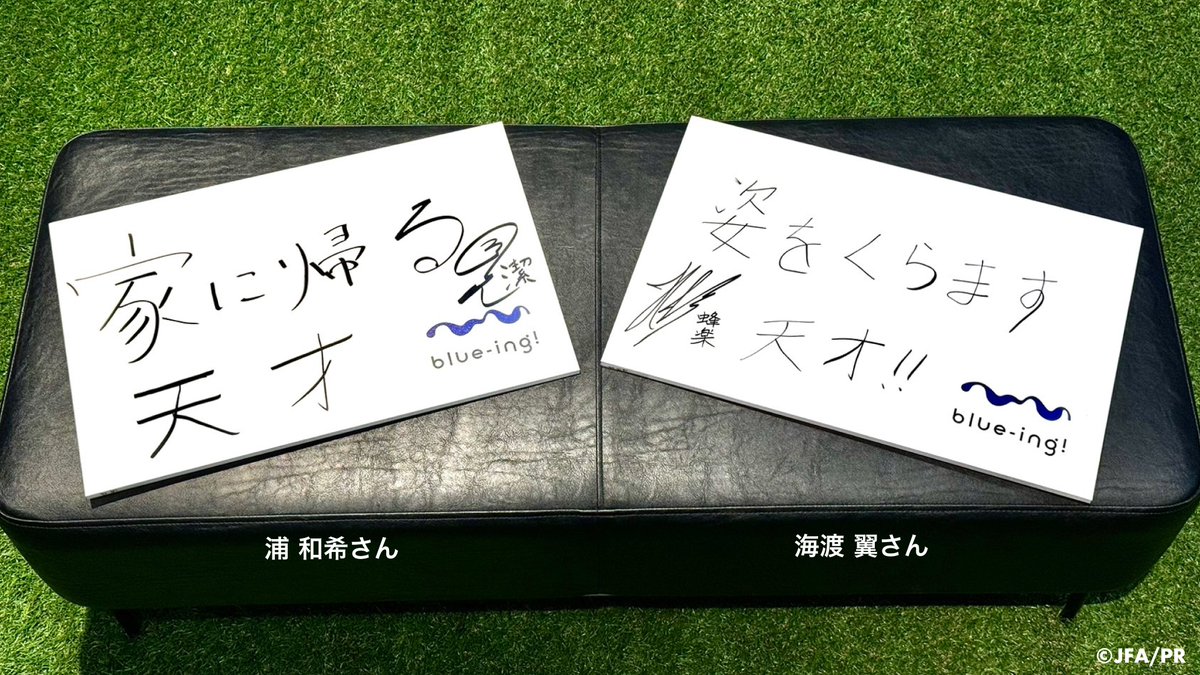 家に帰る
天才
潔
blue-ing!
姿をくらます
天才!!
蜂楽
blue-ing!
浦 和希さん
海渡 翼さん
©JFA/PR